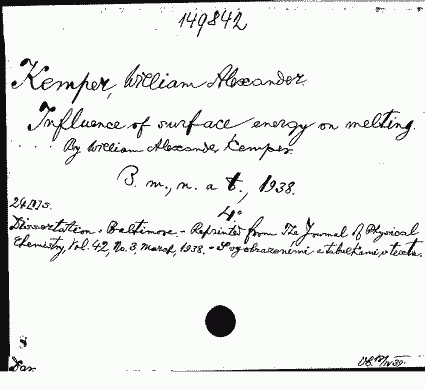 149842
Kemper, William Alexander.
Influence of surface energy on melting.
By William Alexander Kemper.
B. m., n. a t., 1938.
4°
Dissertation. Baltimore. - Reprinted from The Journal of Physical
Chemistry, Vol. 42, No. 3, March, 1938. - S vyobrazeními a tabulkami, v textu.
Dar.